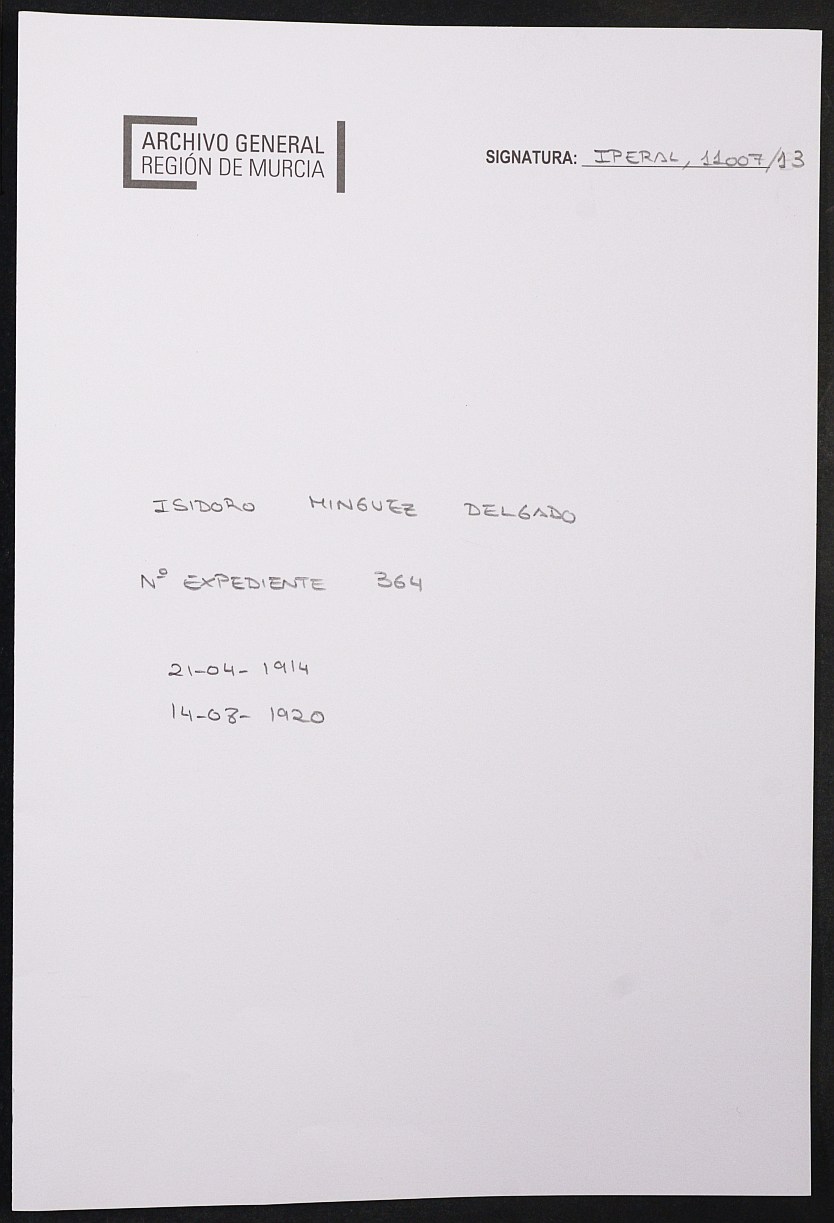 ARCHIVO GENERAL
REGIÓN DE MURCIA
SIGNATURA: IPERAL, 11007/13
ISIDORO MINGUEZ DELGADO
Nº EXPEDIENTE 364
21-04-1914
14-08-1920